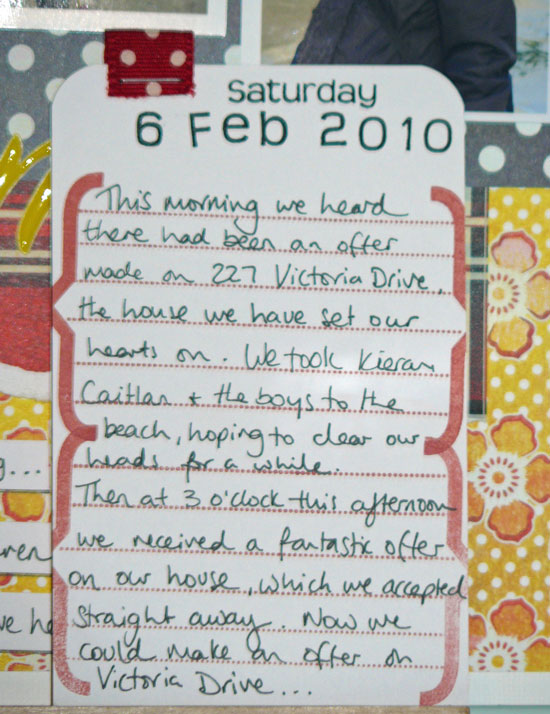 Saturday
6 Feb 2010
This morning we heard
there had been an offer
made on 227 Victoria Drive.
the house we have set our
hearts on. We took Kieran
Caitlan + the boys to the
beach, hoping to clear our
heads for a while.
Then at 3 o'clock this afternoon
we received a fantastic offer
on our house, which we accepted
straight away. Now we
could make an offer on
Victoria Drive...